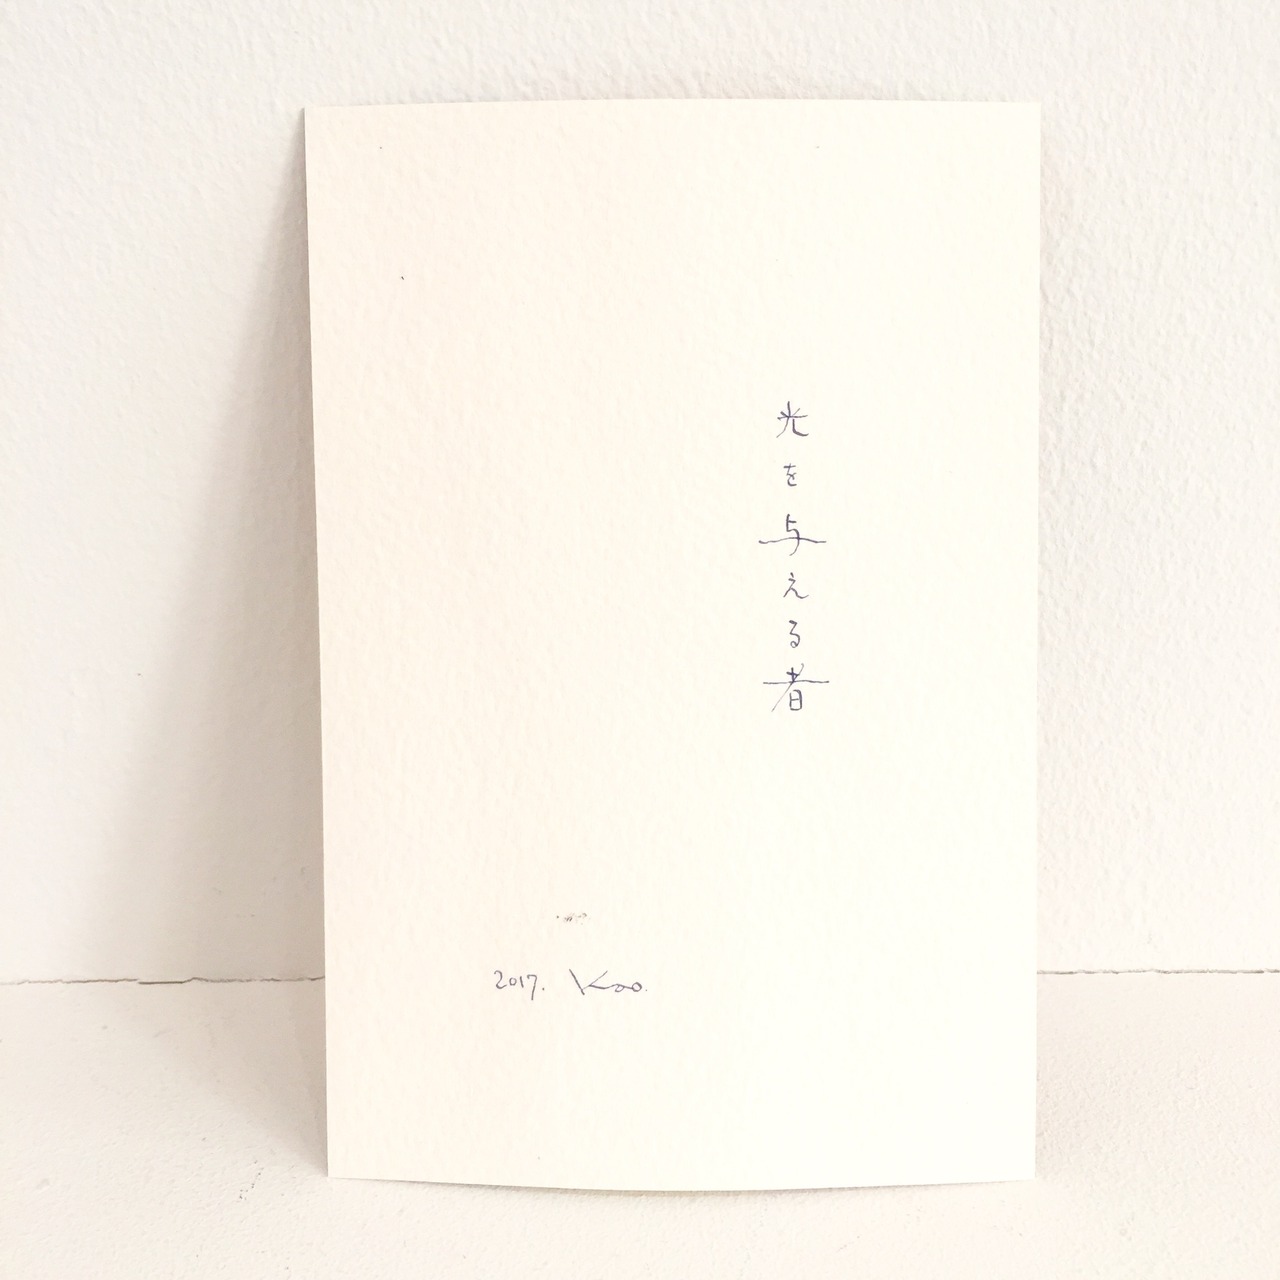 光を与える者
2017. Koo.